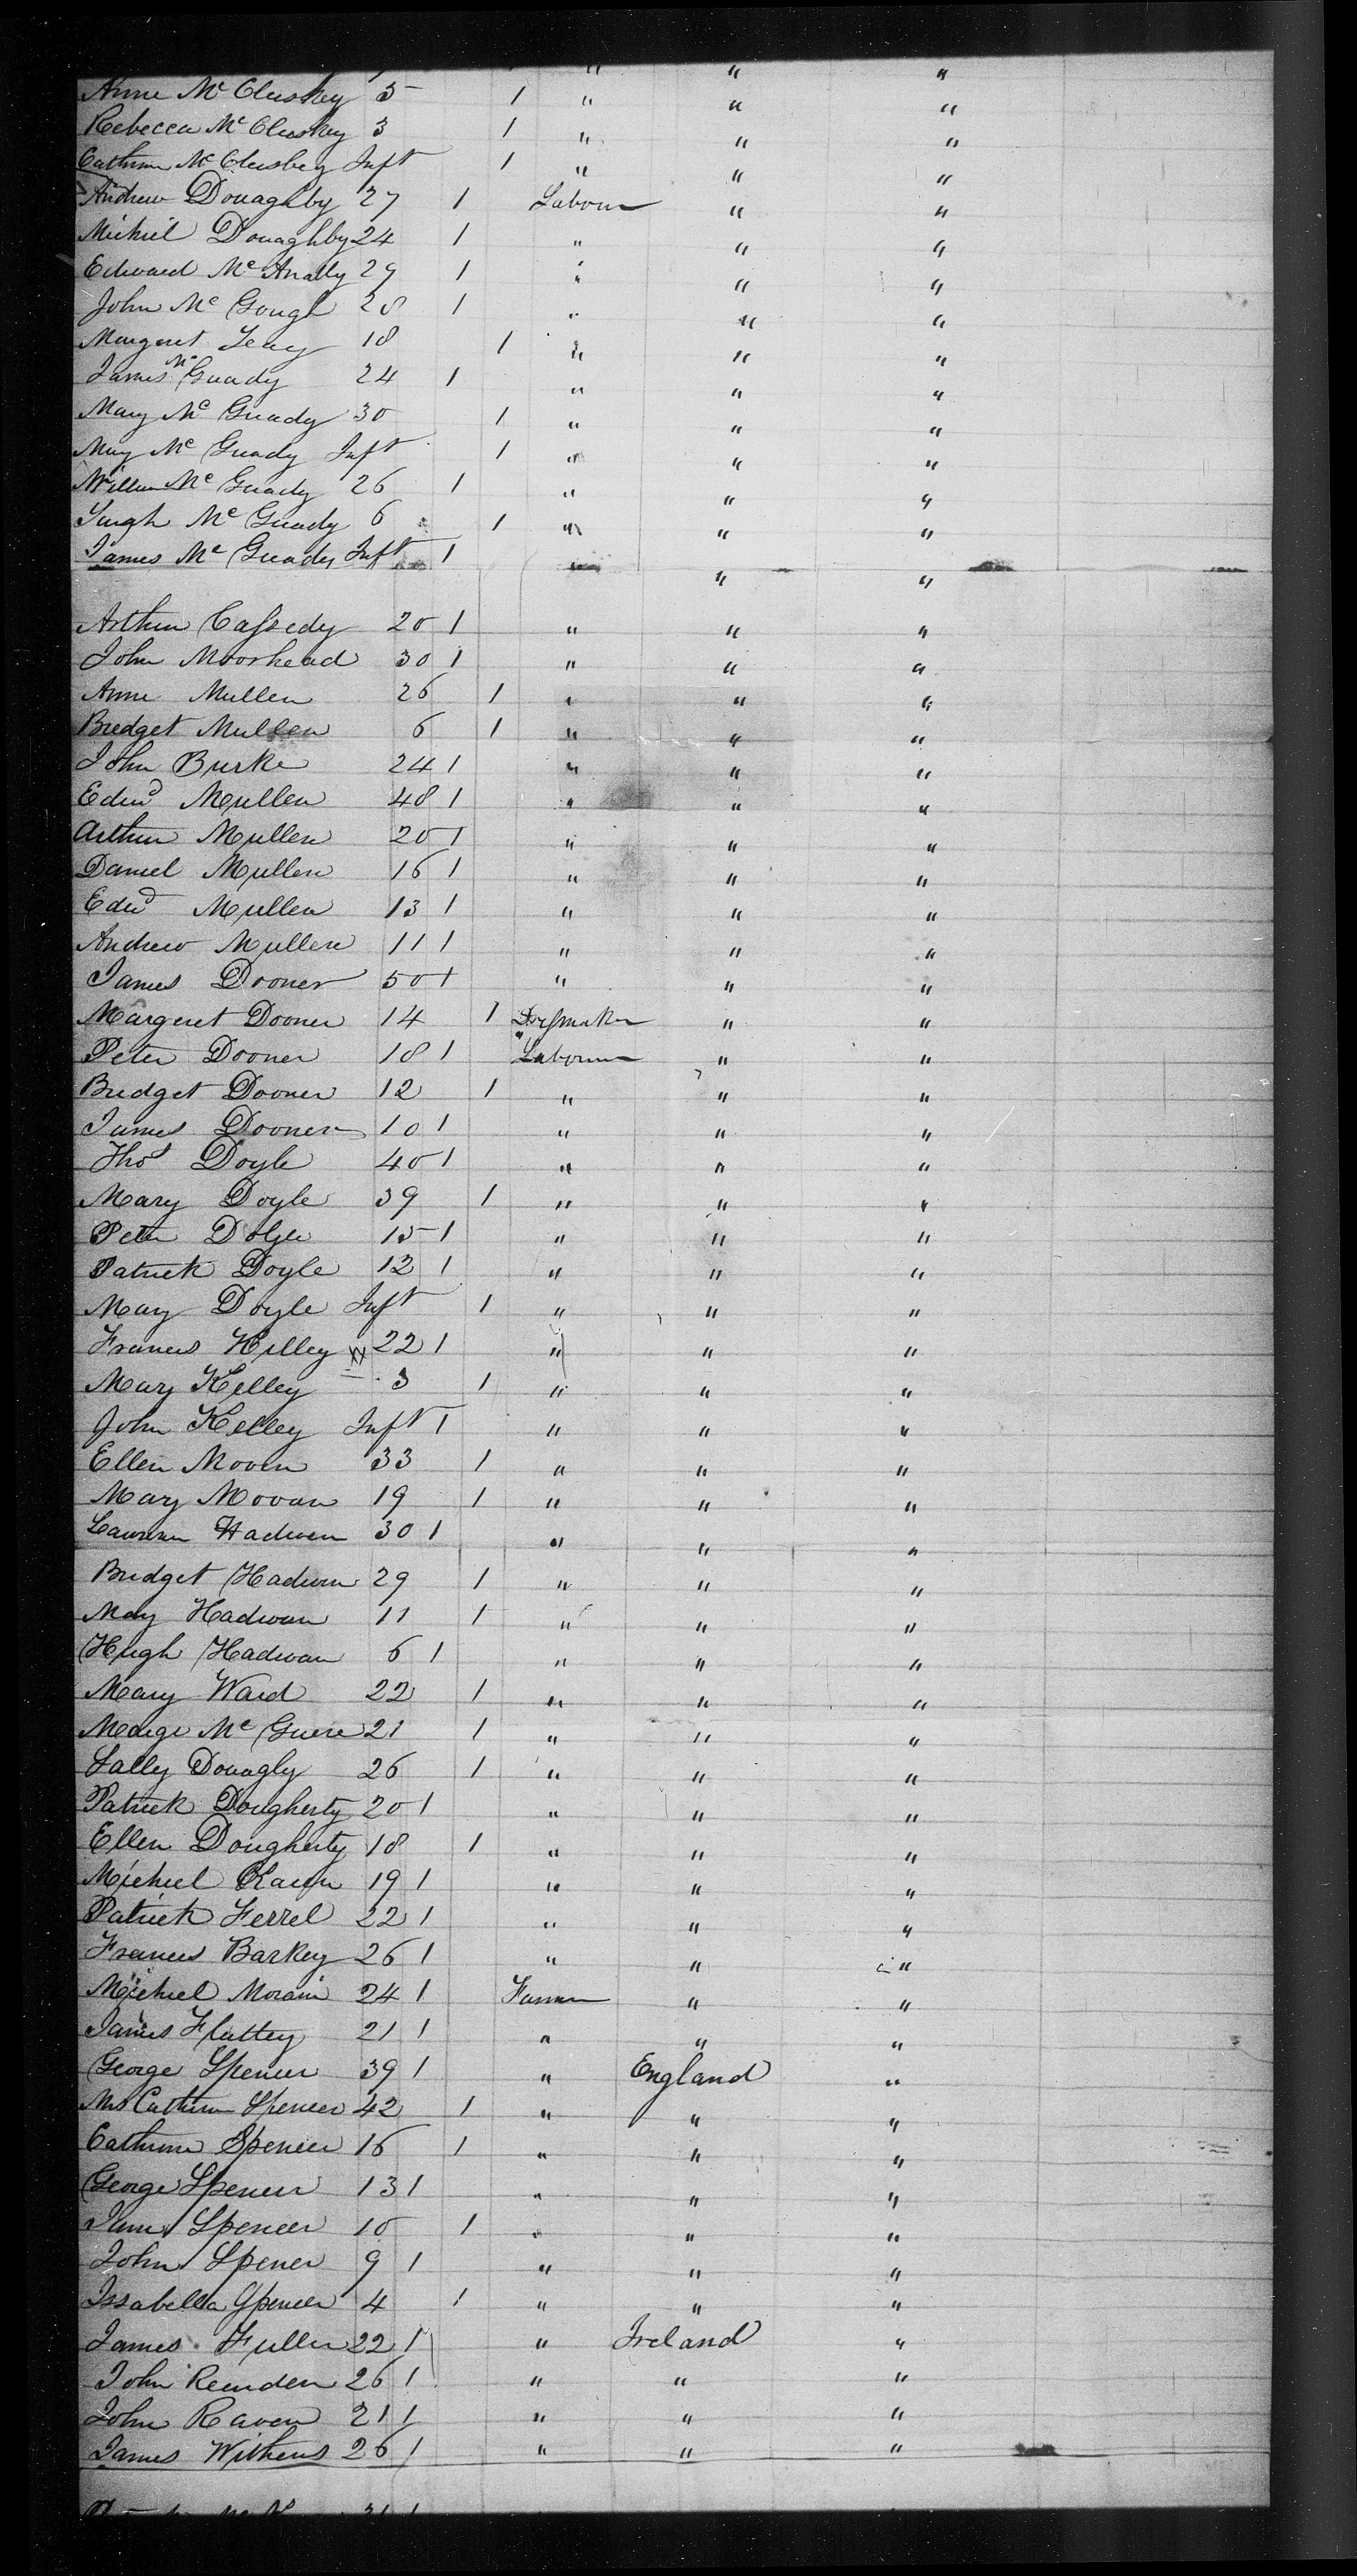 " " "
Anne Mc Cluskey 5 1 " " "
Rebecca Mc Cluskey 3 1 " " "
Cathrine Mc Cluskey Inft 1 " " "
Andrew Donaghby 27 1 Labourer " "
Michiel Donaghby 24 1 " " "
Edward Mc Anally 29 1 " " "
John Mc Gough 28 1 " " "
Margret 18 1 " " "
James Mc Guady 24 1 " " "
Mary Mc Guady 30 1 " " "
Mary Mc Guady Inft 1 " " "
William Mc Guady 26 1 " " "
Mc Guady 6 1 " " "
James Mc Guady Inft 1 " " "
Arthur Cassedy 20 1 " " "
John Moorhead 30 1 " " "
Anne Mullen 26 1 " " "
Bredget Mullen 6 1 " " "
John Burke 24 1 " " "
Edwd Mullen 48 1 " " "
Arthur Mullen 20 1 " " "
Daniel Mullen 16 1 " " "
Edwd Mullen 13 1 " " "
Andrew Mullen 11 1 " " "
James Dooner 50 1 " " "
Margeret Dooner 14 1 Dressmaker " "
Peter Dooner 18 1 " Labourer " "
Bredget Dooner 12 1 " " "
James Dooner 10 1 " " "
Thos Doyle 40 1 " " "
Mary Doyle 39 1 " " "
Peter Dolye 15 1 " " "
Patrick Doyle 12 1 " " "
Mary Doyle Inft 1 " " "
Frances Killey 22 1 " " "
Mary Kelley 3 1 " " "
John Kelley Inft 1 " " "
Ellen Moven 33 1 " " "
Mary Movan 19 1 " " "
Lawrence Hadwen 30 1 " " "
Bridget Hadwen 29 1 " " "
May Hadwan 11 1 " " "
Hugh Hadwan 6 1 " " "
Mary Ward 22 1 " " "
Marge Mc Guere 21 1 " " "
Sally Donagly 26 1 " " "
Patrick Dougherty 20 1 " " "
Ellen Dougherty 18 1 " " "
Michiel 19 1 " " "
Patrick Ferrel 22 1 " " "
Frances Barkey 26 1 " " "
Michiel Morain 24 1 Farmer " "
James Flattey 21 1 " " "
George Spencer 39 1 " England "
Mrs Cathern Spencer 42 1 " " "
Cathrine Spencer 16 1 " " "
George Spencer 13 1 " " "
Jane Spencer 10 1 " " "
John Spencer 9 1 " " "
Issabella Spencer 4 1 " " "
James Fuller 22 1 " Ireland "
John Reinden 26 1 " " "
John Raven 21 1 " " "
James Withens 26 1 " " "